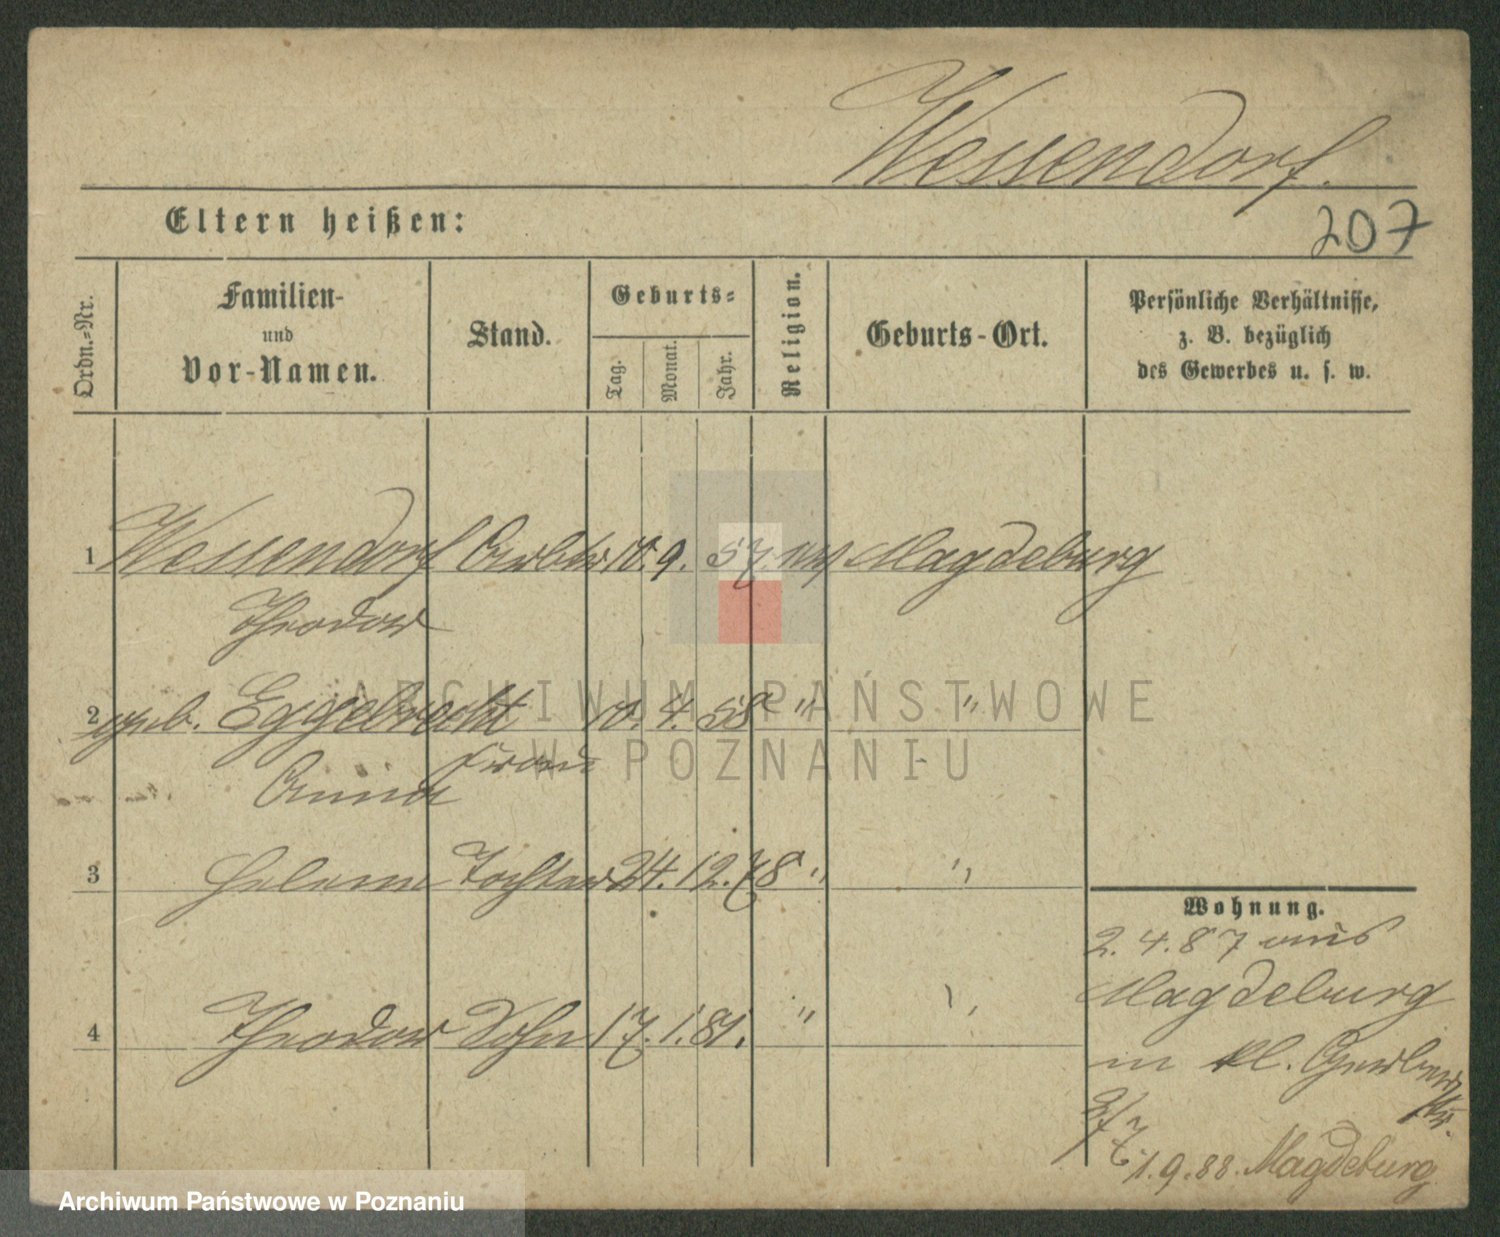 Wessendorf.
Eltern heißen:
207
Ordn.-Nr.
Familien-
und
Vor-Namen.
Stand.
Geburts-
Tag.
Monat.
Jahr.
Religion.
Geburts-Ort.
Persönliche Verhältnisse,
z. B. bezüglich
des Gewerbes u. s. w.
1 Wessendorf Arbtr 10. 9. 57. Magdeburg
Theodor
2 geb. Eggebrecht 10. 4. 58 " "
Frau
Anna
3 Helene Tochter 24. 12. 78 " "
Wohnung.
2. 4. 87 aus
Magdeburg
4 Theodor Sohn 17. 1. 81. " "
in kl. Gerber
str.
2/7
1. 9. 88. Magdeburg
ARCHIWUM PAŃSTWOWE
W POZNANIU
Archiwum Państwowe w Poznaniu